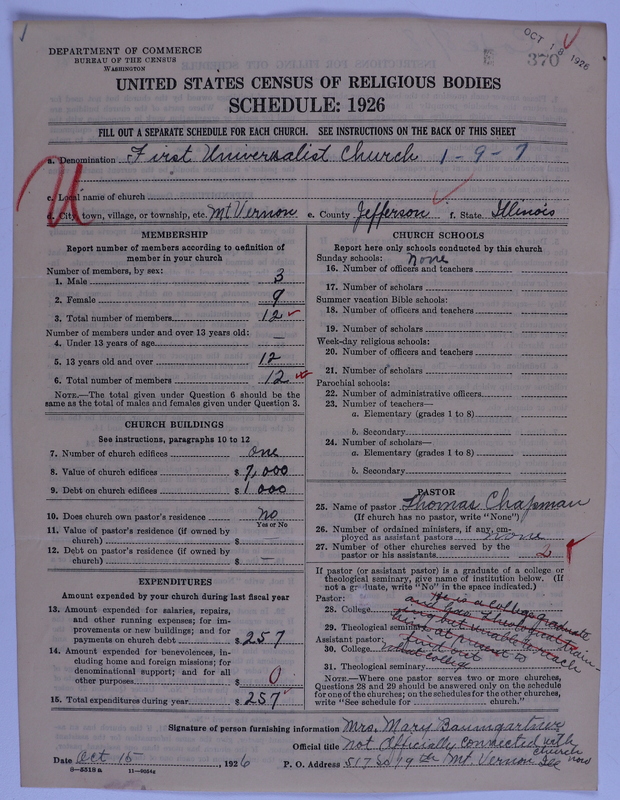 OCT 18 1926
370
DEPARTMENT OF COMMERCE
BUREAU OF THE CENSUS
WASHINGTON
UNITED STATES CENSUS OF RELIGIOUS BODIES
SCHEDULE: 1926
FILL OUT A SEPARATE SCHEDULE FOR EACH CHURCH. SEE INSTRUCTIONS ON THE BACK OF THIS SHEET
a. Denomination First Universalist Church 1-9-7
c. Local name of church
d. City, town, village, or township, etc. Mt Vernon e. County Jefferson f. State Illinois
MEMBERSHIP
Report number of members according to definition of
member in your church
Number of members, by sex:
1. Male 3
2. Female 9
3. Total number of members 12
Number of members under and over 13 years old:
4. Under 13 years of age —
5. 13 years old and over 12
6. Total number of members 12
NOTE.—The total given under Question 6 should be
same as the total of males and females given under Question 3.
CHURCH BUILDINGS
See instructions, paragraphs 10 to 12
7. Number of church edifices one
8. Value of church edifices $ 7,000
9. Debt on church edifices $ 1000
10. Does church own pastor's residence No
Yes or No
11. Value of pastor's residence (if owned by
church) $ —
12. Debt on pastor's residence (if owned by
church) $ —
EXPENDITURES
Amount expended by your church during last fiscal year
13. Amount expended for salaries, repairs,
and other running expenses; for im-
provements or new buildings; and for
payments on church debt $ 257
14. Amount expended for benevolences, in-
cluding home and foreign missions; for
denominational support; and for all
other purposes $ 0
15. Total expenditures during year $ 257
CHURCH SCHOOLS
Report here only schools conducted by this church
Sunday schools: None
16. Number of officers and teachers
17. Number of scholars
Summer vacation Bible schools:
18. Number of officers and teachers
19. Number of scholars
Week-day religious schools:
20. Number of officers and teachers
21. Number of scholars
Parochial schools:
22. Number of administrative officers
23. Number of teachers—
a. Elementary (grades 1 to 8)
b. Secondary
24. Number of scholars—
a. Elementary (grades 1 to 8)
b. Secondary
PASTOR
25. Name of pastor Thomas Chapman
(If church has no pastor, write "None")
26. Number of ordained ministers, if any, em-
ployed as assistant pastors none
27. Number of other churches served by the
pastor or his assistants 2
If pastor (or assistant pastor) is a graduate of a college or
theological seminary, give name of institution below. (If
not a graduate, write "No" in the space indicated.)
Pastor: He is a college graduate
28. College and has theological train-
29. Theological seminary ing but unable to reach
Assistant pastor: him at present to
30. College find out
what college
31. Theological seminary
NOTE.—Where one pastor serves two or more churches,
Questions 28 and 29 should be answered only on the schedule
for one of the churches; on the schedules for the other churches,
write "See schedule for church."
Signature of person furnishing information Mrs. Mary Baumgartner
Official title Not Officially connected with
church now
Date Oct 15, 1926 P. O. Address 517 So 19th Mt. Vernon Ill
8-5518a 11-9054g